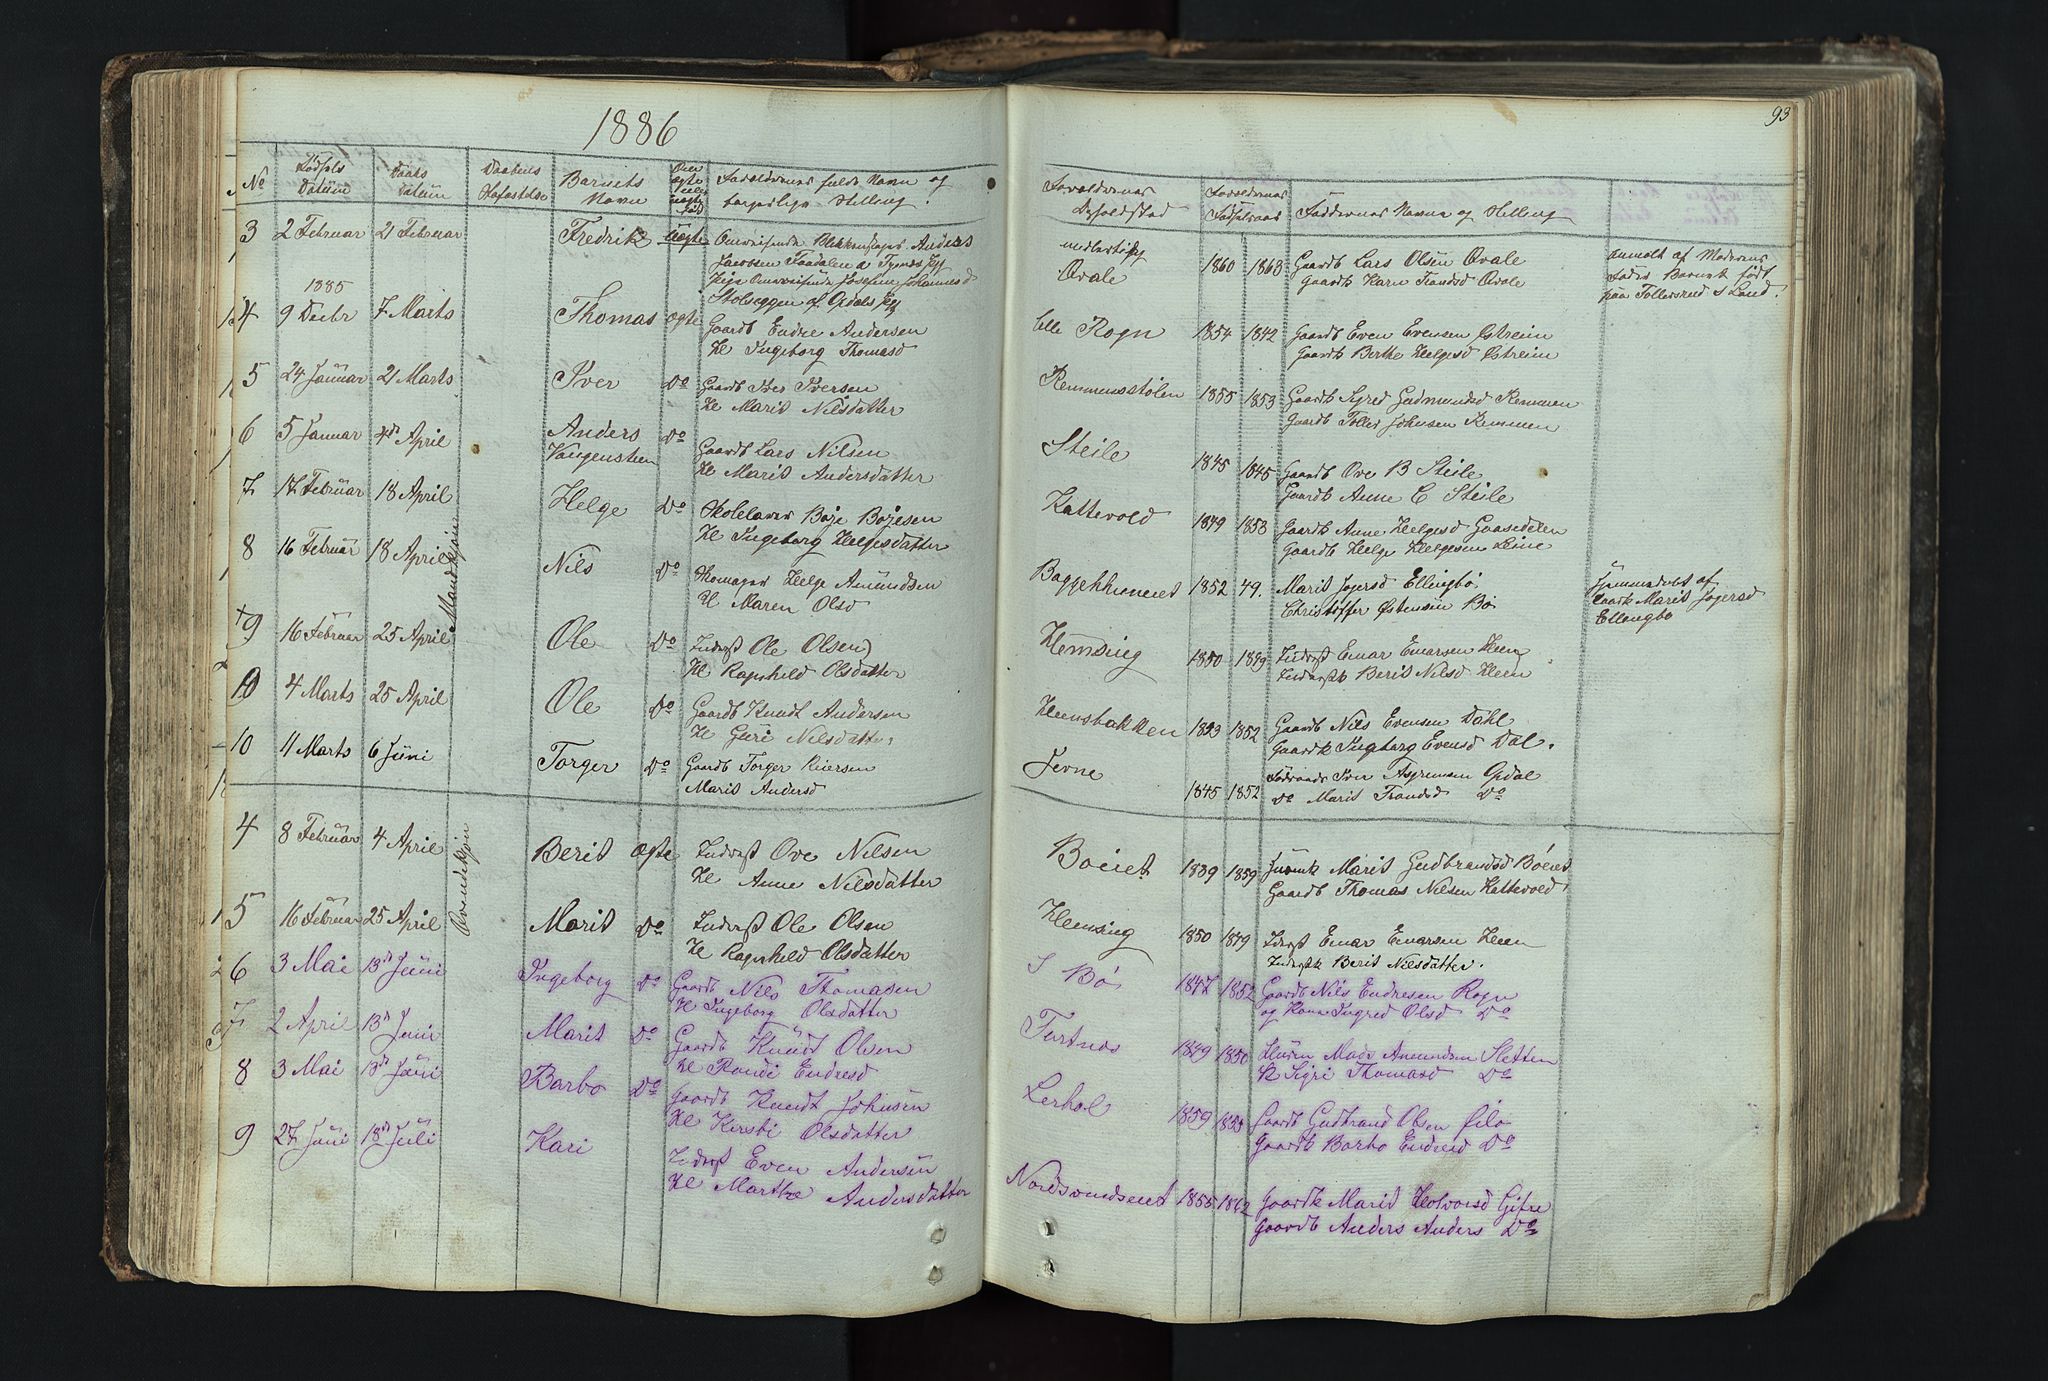 1886
93
No
Fødsels Datum
Daabs Datum
Daabens
Barnets Navn
Forældrenes fulde Navn og borgerlige Stilling.
Forældrenes Opholdsted
Forældrenes Fødselsaar
Faddernes Navne og Stilling
3 2 Februar 21 Februar Fredrik Uægte Anders
Øvale 1860 1863 Gaardb Lars Olsen Øvale
Gaardk Karn Trondsd Øvale
anmeldt af Moderens
Fader Barnet født
paa Tollersrud S Land.
1885
4 9 Decbr 7 Marts Thomas ægte Gaardb Endre Andersen
H Ingeborg Thomasd
Rogn 1854 1842 Gaardb Even Evensen Østreim
Gaardk Berthe Helgesd Østreim
5 24 Januar 21 Marts Iver Do Gaardb Iver Iversen
H Marit Nilsdatter
Remmensstølen 1855 1853 Gaardk Sigred Gudmundsd Remmen
Gaardb Tollef Johnsen Remmen
6 5 Januar 4de April Anders
Vangensteen Do Gaardb Lars Nilsen
H Marit Andersdatter
Steile 1845 1845 Gaardb Ove B Steile
Gaardk Anne C Steile
7 17 Februar 18 April Helge Do Skolelærer Boje Bojesen
H Ingeborg Helgesdatter
Kattevold 1849 1853 Gaardk Anne Helgesd Gaasedelen
Gaardb Helge Helgesen Leine
8 16 Februar 18 April Nils Do Skomager Helge Amundsen
H Maren Olsd
1852 49. Marit Jogersd Ellingbø
Christoffer Østensen Bø
Hjemmedøbt af
Gaardk Marit Jogersd
Ellingbø
Mandkjøn
9 16 Februar 25 April Ole Do Inderst Ole Olsen
H Ragnhild Olsdatter
Hemsing 1850 1849 Inderst Einar Einarsen Heen
Inderstk Berit Nilsd Heen
10 4 Marts 25 April Ole Do Gaardb Knudt Andersen
H Guri Nilsdatter
Heensbakken 1853 1852 Gaardb Nils Evensen Dahl
Gaardk Ingeborg Evensd Dal.
10 4 Marts 6 Juni Torger Do Gaardb Torger Reiersen
Marit Andersd
Jevne 1845 1852 Iver Asgrimsen Opdal
Do Marit Trondsd Do
4 8 Februar 4 April Berit ægte Inderst Ove Nilsen
H Anne Nilsdatter
Bøeiet 1839 1859 Marit Gudbrandsd Bøeiet
Gaardb Thomas Nilsen Kattevold
Qvendekjøn
5 16 Februar 25 April Marit Do Inderst Ole Olsen
H Ragnhild Olsdatter
Heensing 1850 1849 Inderst Einar Einarsen Heen
Inderstk Berit Nilsdatter.
6 3 Mai 13de Juni Ingeborg Do Gaardb Nils Thomasen
H Ingeborg Olsdatter
S Bø 1847 1852 Gaardb Nils Endresen Rogn
og Kone Ingrid Olsd Do
7 2 April 13de Juni Marit Do Gaardb Knudt Olsen
H Randi Endresd
Turtnes 1849 1850 Mads Amundsen Sletten
K Sigri Thomasd Do
8 3 Mai 13de Juni Barbo Do Gaardb Knudt Johnsen
H Kirsti Olsdatter
Lerhol 1859 1853 Gaardb Gudbrand Olsen
Gaardk Barbo Endresd Do
9 27 Juni 18de Juli Kari Inderst Even Andersen
H Marthe Andersdatter
1855 1862 Gaardk Marit Holversd Gifre
Gaardb Anders Anders Do